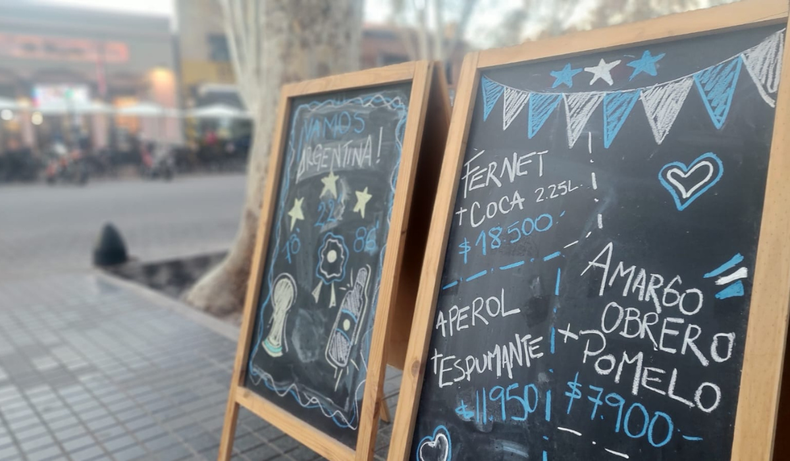 VAMOS
ARGENTINA!
22
78
86
FERNET
+ COCA 2.25L
$18.500.-
APEROL
+ ESPUMANTE
$11.950
AMARGO
OBRERO
+ POMELO
$7.900-